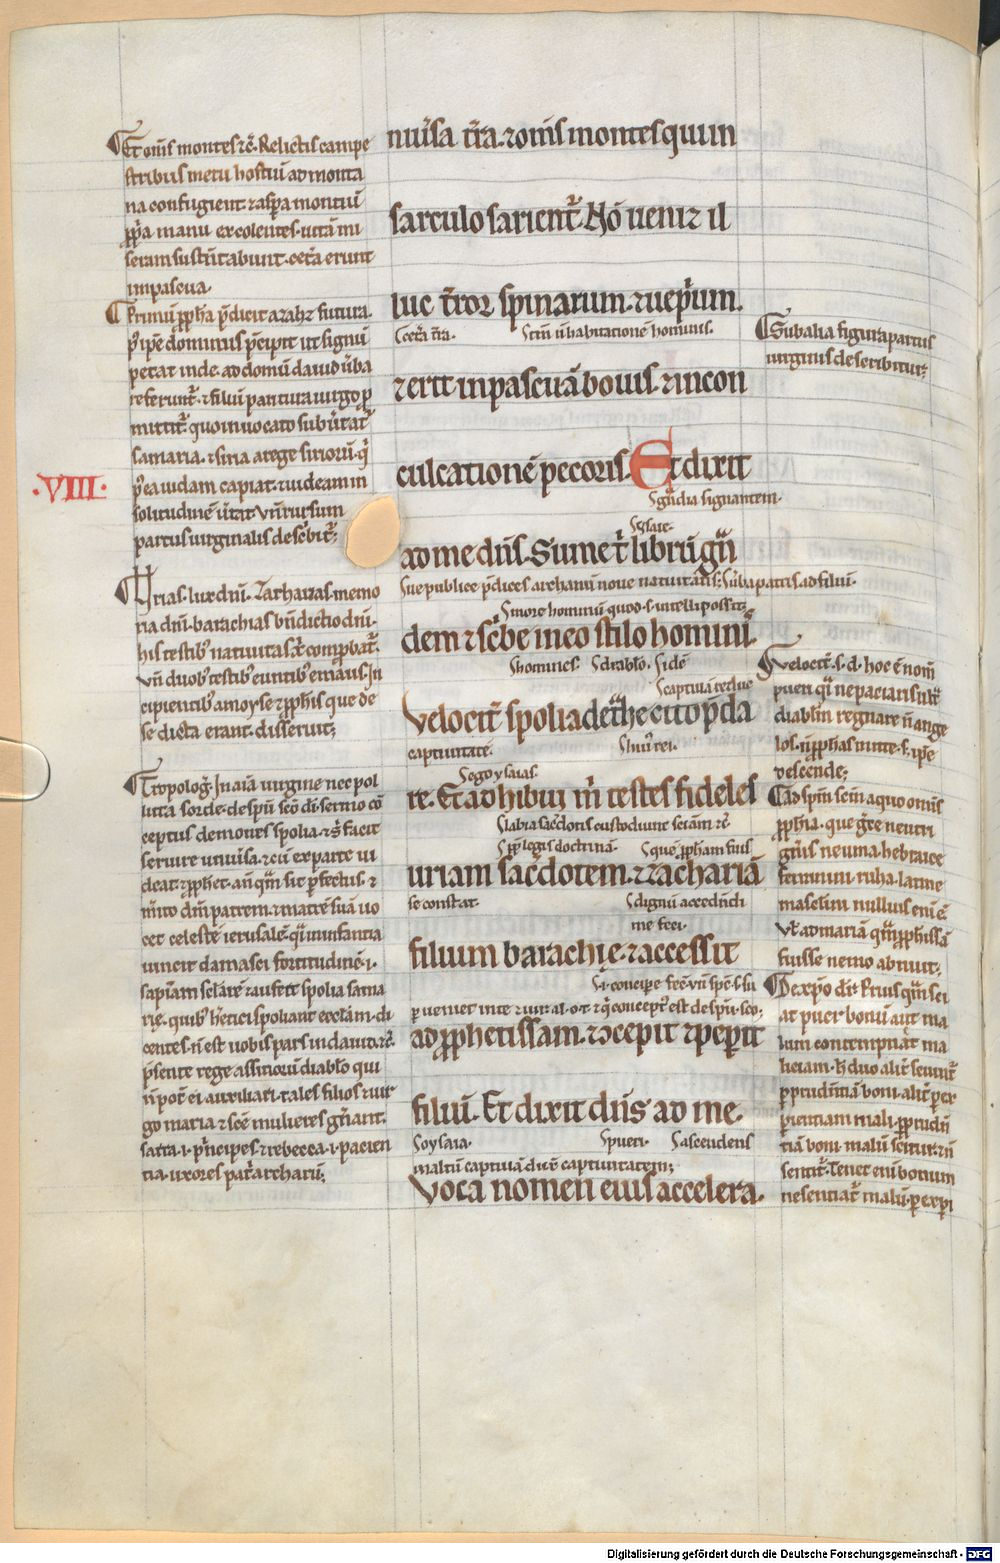 ⁋Et om̄s montes ⁊c̄. Relictis campe
stribus metu hostiū ad monta
na confugient ⁊ aspa montiū
manu excolentes uitā mi
seram sustētabunt. cet̄a erunt
in pascua.
⁋Primū ꝓpha p̄dicit azahꝫ futura.
p̄ ipe dominus p̄cipit ut signū
petat inde. ad domū dauid ūba
referunt᷑. ⁊ filiū paritura uirgo ꝓ
mittit᷑. quo inuocato subūtat᷑
samaria. ⁊ siria a rege sirioꝝ. q̄
p̄ea iudam capiat. ⁊ iudeam in
solitudinē ūtit. Vn̄ rursum
partus uirginalis desc̄bit᷑;
.VIII.
⁋Vrias. lux dn̄i. Zacharias. memo
ria dn̄i. barachias bn̄dictio dn̄i.
his testib; natiuitas x̄. compbat᷑.
Vn̄ duob; testib; euntib; emaus. In
cipientib; a moyse ⁊ ꝓphis que de
se dicta erant. disseruit;
⁋Tropoloḡ. In aīa uirgine nec pol
luta sorde. de spū sc̄o d̄i sermo cō
ceptus demones spolia. ⁊ s̄ facit
seruire uniūsa. ⁊ cū ex parte ui
deat. ⁊ ꝓphet. an̄ q̄m sit p̄fectus. ⁊
dn̄m patrem. ⁊ matrē suā uo
cet celestē ierusalē. q̄ in infantia
uincit damasci fortitudinē .i.
sapīam sclārē ⁊ aufert spolia sama
rie. quib; hetici spoliant eccłam. di
centes. n̄ est uobis pars in dauid. ⁊c̄.
p̄sente rege assirioꝝ diabło qui
n̄ pot̄ ei auxiliari. tales filios ⁊ uir
go maria ⁊ sc̄e mulieres ḡnant.
sarra .i. p̄ncipes ⁊ rebecca .i. pacien
tia. uxores pat̄archarū;
niūsa t̄ra. ⁊ om̄s montes qui in
sarculo sarient᷑. Nō ueniꝫ il
luc t̄roꝛ spinarum. ⁊ uep̄ium.
S cet̄a t̄ra. S tm̄ n̄ habitatione hominis.
⁊ erit in pascuā bouis. ⁊ in con
culcationē pecoris. Et dixit
S gn̄dia signantem.
S ysaie.
ad me dn̄s. Sume t̄ librū gn̄
S ue publice p̄dices archanū noue natiuitatis; S ūba patris ad filiū.
S more hominū quod .s. intelligi possit;
dem ⁊ sc̄be in eo stilo homini.
S homines. S diabło. S idē
S captiua recte
Velocit᷑ spolia det̄he. cito p̄da
captiuitate. S huī rei.
S ego ysaias.
re. Et adhibui m̄ testes fideles
S labia sac̄dotis custodiunt sciam ⁊c̄
S legis doctrina. S que ꝓpham fuis
uriam sac̄dotem. ⁊ zachariā
se constat. S dignū accedn̄di
me feci.
filium barachie. ⁊ accessit
S .i. concipe
p ueniet in te ⁊ uir. al. o. t. ⁊ q̄ concept᷑ est de spū. sc̄o;
ad ꝓphetissam. ⁊ cc̄epit ⁊ peperit
filiū. Et dixit dn̄s ad me.
S o ysaia. S pueri. S ascendens
in altū captiuā dux̄ captiuitatem;
Voca nomen eius accelera.
⁋Sub alia figura partus
uirginis describitur;
⁋Velocit᷑ .s. d. hoc ē nom̄
pueri q̄ ne paciaris ult᷑
diabłm regnare n̄ ange
los. n̄ ꝓphas mitte. s. ipe
descende;
⁋Ad spm̄ sc̄m a quo om̄is
ꝓphia. que gr̄ce neutri
gn̄is neuma. hebraice
feminini. ruha. latine
masclini. nullus enī ē
Vł ad mariā q̄m ꝓphissā
fuisse nemo abnuit;
⁋De xp̄o dīt. Prius q̄m sci
at puer bonū aut ma
lum contempnat ma
liciam. h̄ duo alit᷑ sciunt᷑
p prudn̄tiā boni. alit᷑ p ex
perientiam mali. p prudn̄
tiā boni malū scitur. ⁊ n̄
sentit᷑. Tenet enī bonum
ne sentiat᷑ malū. p experi
Digitalisierung gefördert durch die Deutsche Forschungsgemeinschaft - DFG